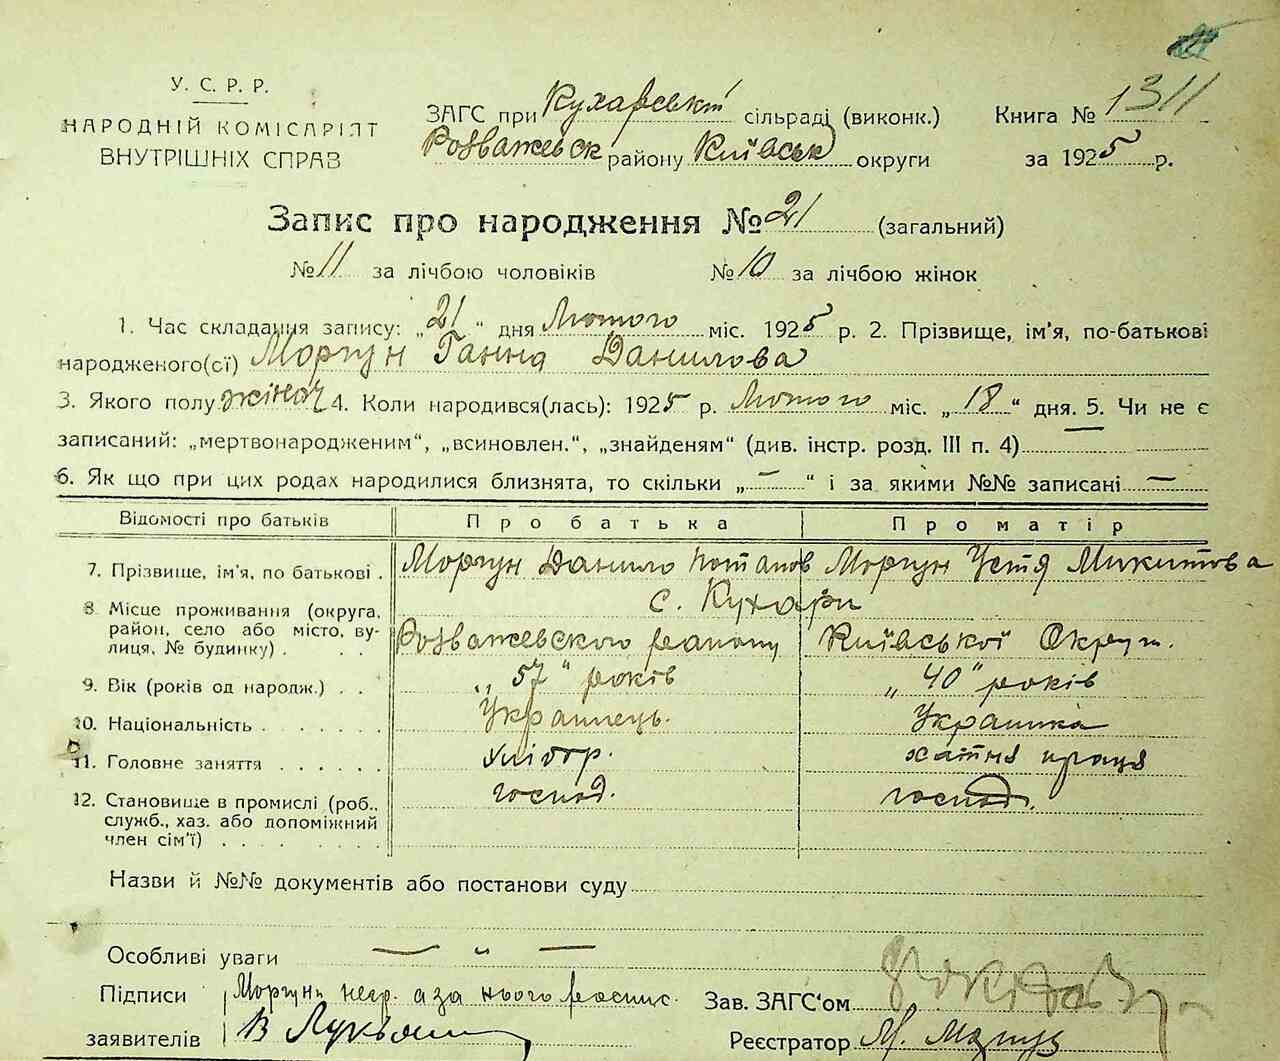 У. С. Р. Р.
НАРОДНІЙ КОМІСАРІЯТ
ВНУТРІШНІХ СПРАВ
ЗАГС при Кухарській сільраді (виконк.)
Розважевськ району Київськ округи
Книга № 1311
за 1925 р.
Запис про народження № 21 (загальний)
№ 11 за лічбою чоловіків № 10 за лічбою жінок
1. Час складання запису: „21“ дня Лютого міс. 1925 р. 2. Прізвище, ім'я, по-батькові
народженого(сі) Моргун Ганна Данилова
3. Якого полу жіноч 4. Коли народився(лась): 1925 р. Лютого міс. „18“ дня. 5. Чи не є
записаний: „мертвонародженим“, „всиновлен.“, „знайденям“ (див. інстр. розд. III п. 4)
6. Як що при цих родах народилися близнята, то скільки „—“ і за якими №№ записані —
Відомості про батьків Про батька Про матір
7. Прізвище, ім'я, по батькові . Моргун Данило Потапов Моргун Устя Микитова
8. Місце проживання (округа, с. Кухари
район, село або місто, ву- Розважевского району Київської Округи.
лиця, № будинку) . . .
9. Вік (років од народж.) . . „57“ років „40“ років
10. Національність . . . . . . Українець. Українка
11. Головне заняття . . . . . хлібор. хатня праця
12. Становище в промислі (роб., господ. господ.
служб., хаз. або допоміжний
член сім'ї) . . . . . . . .
Назви й №№ документів або постанови суду
Особливі уваги — „ —
Підписи Моргун негр. а за нього роспис.
заявителів В
Зав. ЗАГС'ом
Реєстратор М.